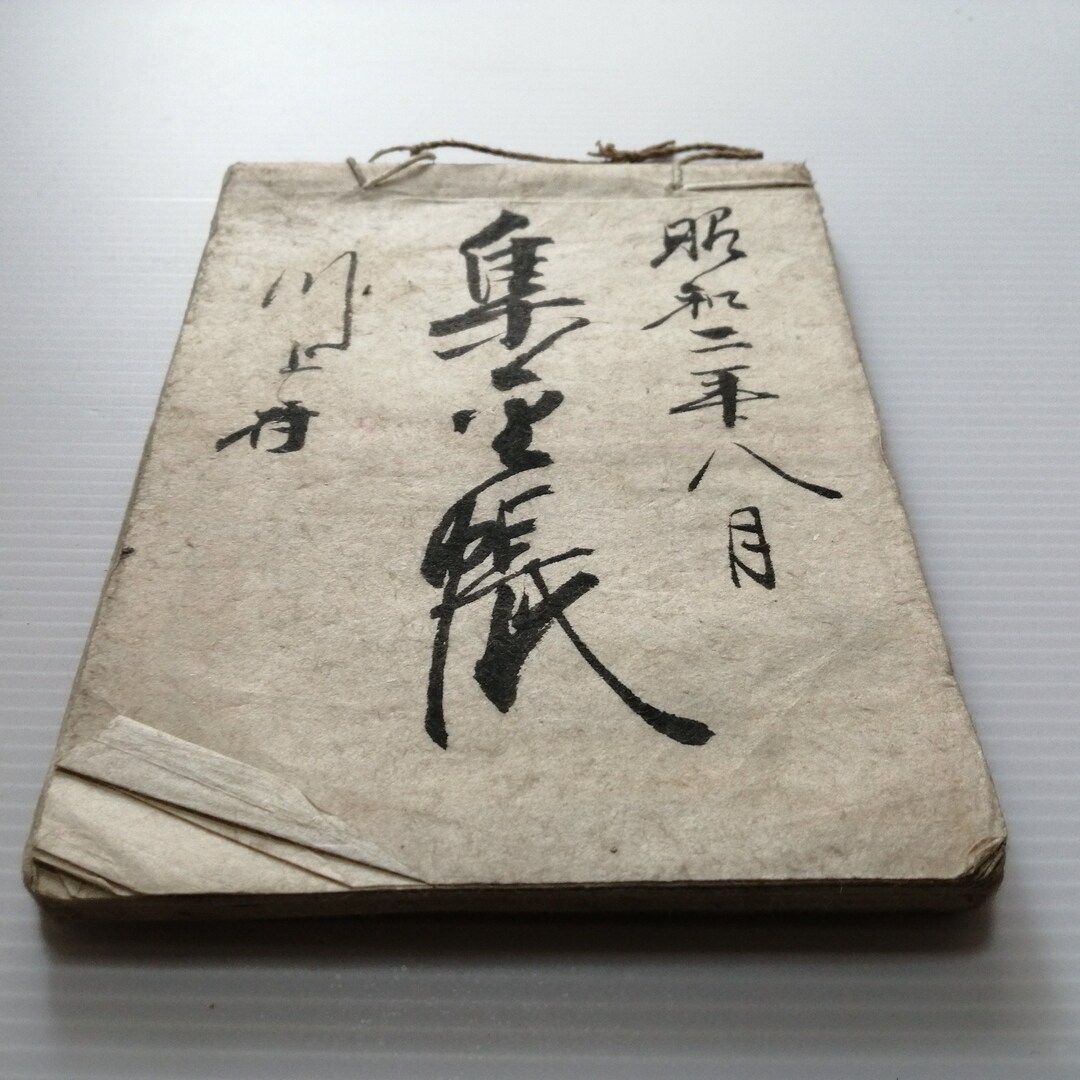 昭和二年八月
集金帳
川上